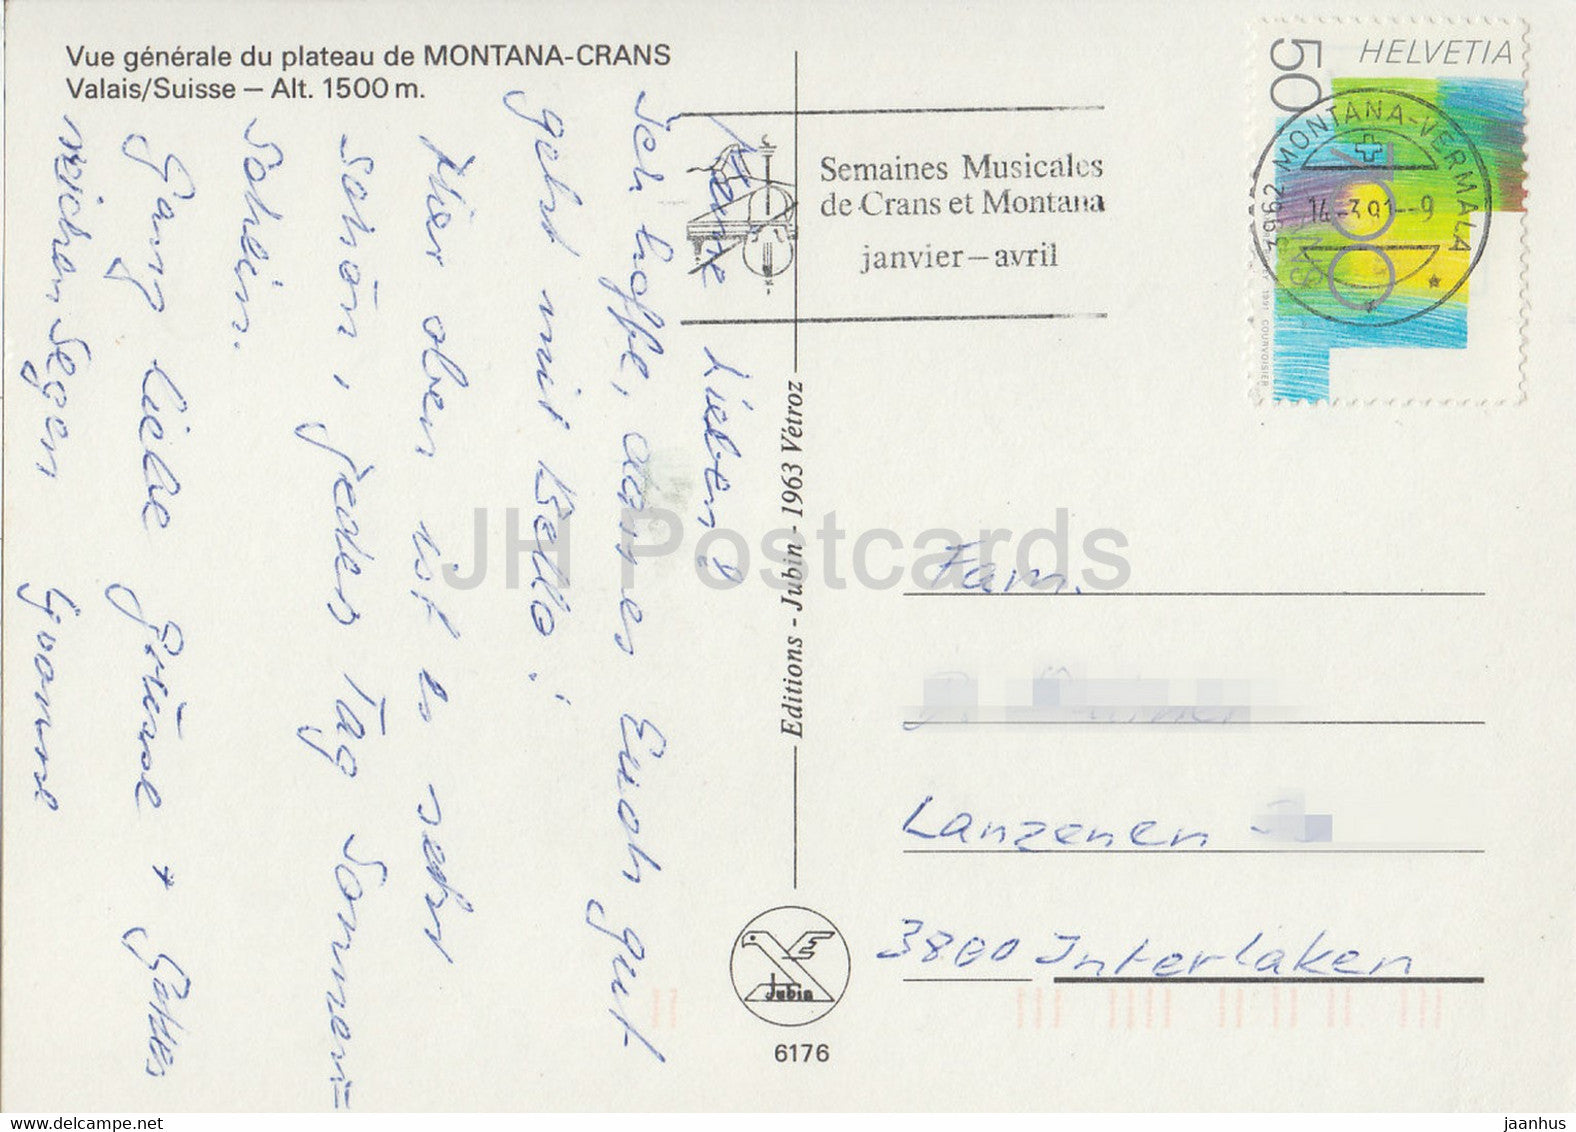 Vue générale du plateau de MONTANA-CRANS
Valais/Suisse – Alt. 1500 m.
Meine Lieben!
Ich hoffe, dass es Euch gut
geht mit Bello!
Hier oben ist es sehr
schön, jeden Tag Sonnen=
schein.
Ganz liebe Grüsse + Gottes
reichen Segen Yvonne
Editions - Jubin - 1963 Vétroz
Jubin
6176
Semaines Musicales
de Crans et Montana
janvier – avril
HELVETIA
50
700
1991 COURVOISIER
3962 MONTANA-VERMALA
14-3.91--9
Fam.
Lanzenen
3800 Interlaken
JH Postcards
www.delcampe.net
jaanhus